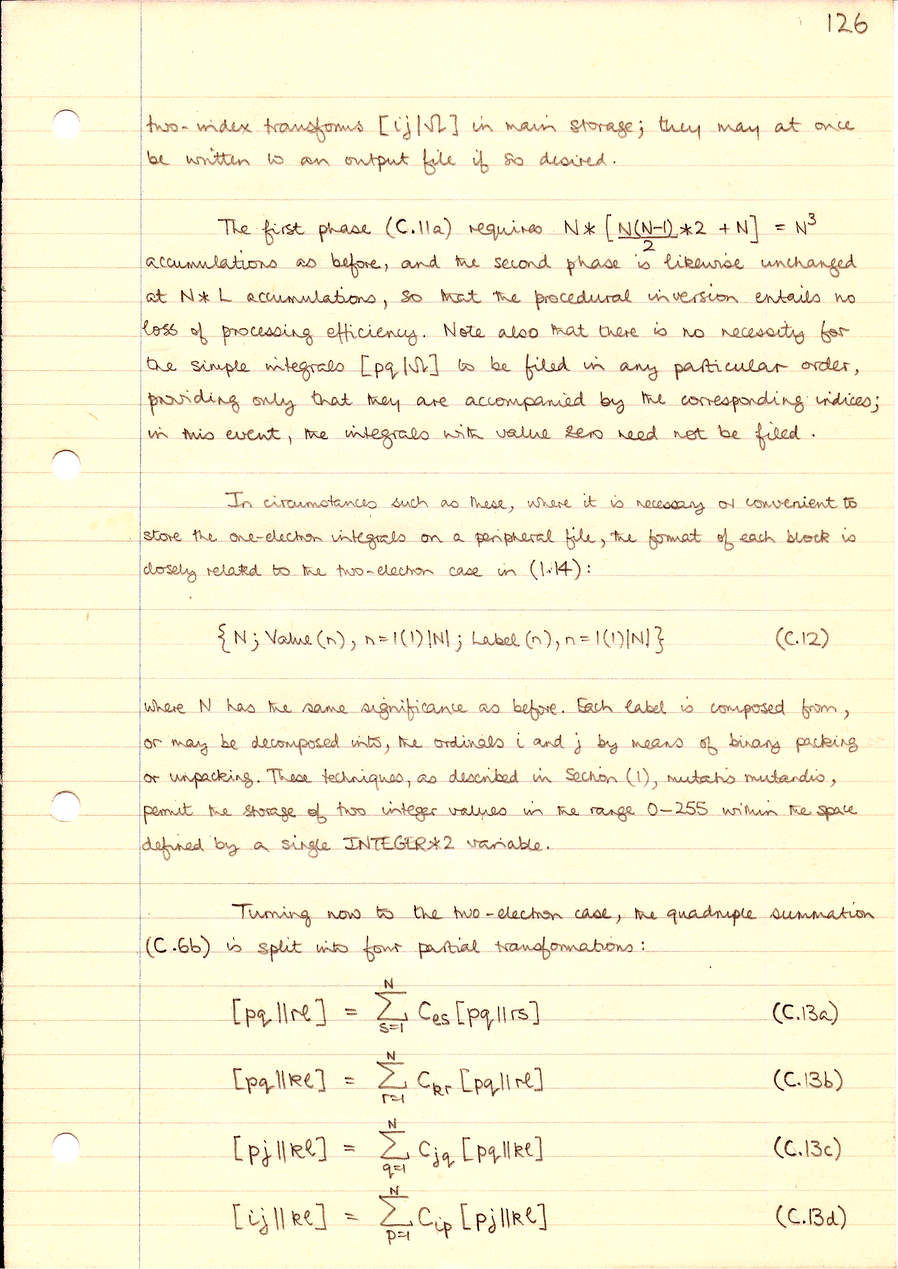 126
two-index transforms [ij|Ω] in main storage; they may at once
be written to an output file if so desired.
The first phase (C.11a) requires N* [N(N-1)/2 *2 + N] = N³
accumulations as before, and the second phase is likewise unchanged
at N*L accumulations, so that the procedural inversion entails no
loss of processing efficiency. Note also that there is no necessity for
the simple integrals [pq|Ω] to be filed in any particular order,
providing only that they are accompanied by the corresponding indices;
in this event, the integrals with value zero need not be filed.
In circumstances such as these, where it is necessary or convenient to
store the one-electron integrals on a peripheral file, the format of each block is
closely related to the two-electron case in (1.14):
{N; Value(n), n=1(1)|N|; Label(n), n=1(1)|N|} (C.12)
where N has the same significance as before. Each label is composed from,
or may be decomposed into, the ordinals i and j by means of binary packing
or unpacking. These techniques, as described in Section (1), mutatis mutandis,
permit the storage of two integer values in the range 0-255 within the space
defined by a single INTEGER*2 variable.
Turning now to the two-electron case, the quadruple summation
(C.6b) is split into four partial transformations:
[pq||rℓ] = Σ_{s=1}^{N} C_{ℓs} [pq||rs] (C.13a)
[pq||kℓ] = Σ_{r=1}^{N} C_{kr} [pq||rℓ] (C.13b)
[pj||kℓ] = Σ_{q=1}^{N} C_{jq} [pq||kℓ] (C.13c)
[ij||kℓ] = Σ_{p=1}^{N} C_{ip} [pj||kℓ] (C.13d)